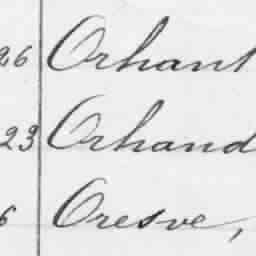 26 Orhant
23 Orhand
6 Oresve,